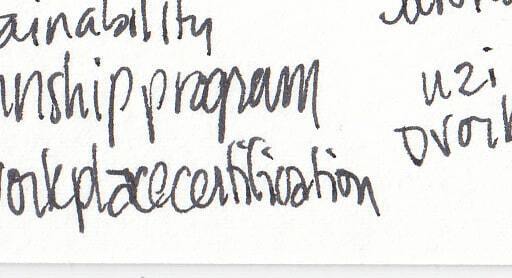 ainability
nship program
orkplace certification
uzi